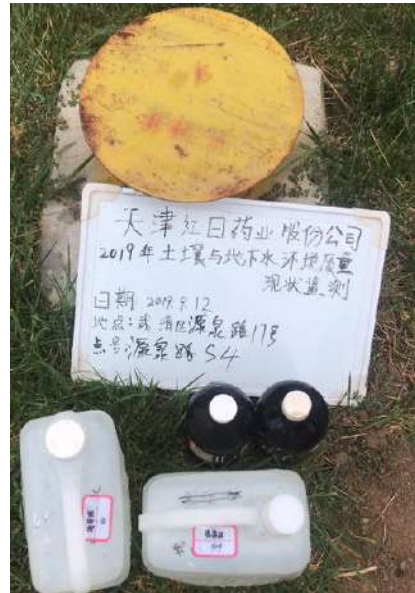 天津红日药业股份公司
2019年土壤与地下水环境质量
现状监测
日期 2019.9.12
地点:武清区源泉路17号
点号:源泉路S4